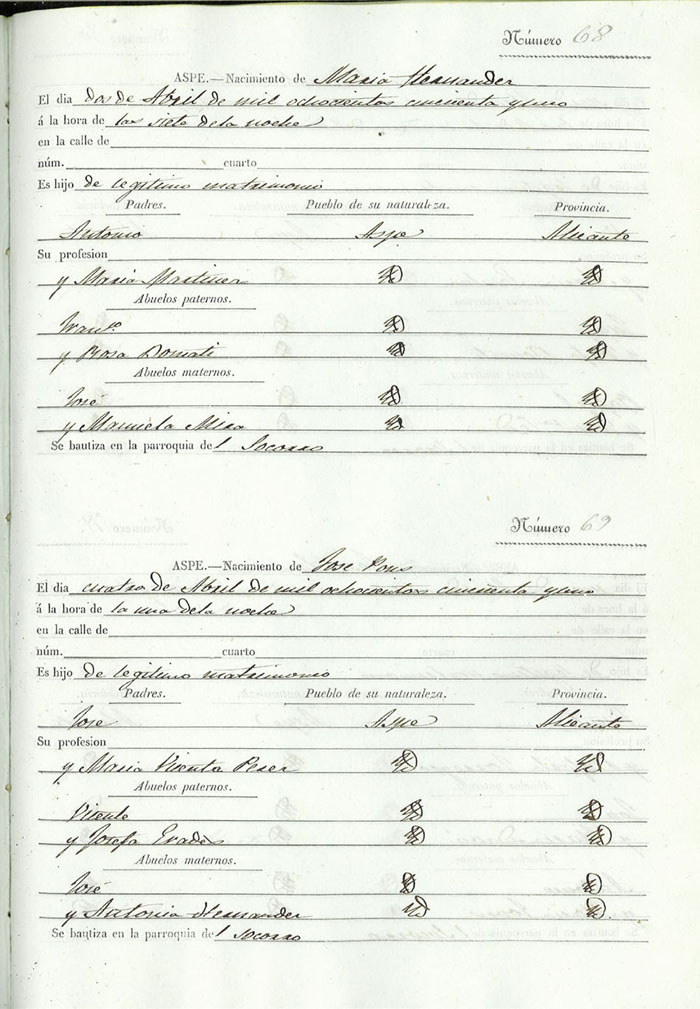 Número 68
ASPE.—Nacimiento de Maria Hernander
El dia dos de Abril de mil ochocientos cincuenta y uno
á la hora de las siete de la noche
en la calle de
núm. cuarto
Es hijo de legitimo matrimonio
Padres. Pueblo de su naturaleza. Provincia.
Antonio Aspe Alicante
Su profesion
y Maria Martiner
Abuelos paternos.
Franco
y Rosa
Abuelos maternos.
José
y Manuela Mira
Se bautiza en la parroquia del Socorro
Número 69
ASPE.—Nacimiento de Jose Pons
El dia cuatro de Abril de mil ochocientos cincuenta y uno
á la hora de la una de la noche
en la calle de
núm. cuarto
Es hijo de legitimo matrimonio
Padres. Pueblo de su naturaleza. Provincia.
Jose Aspe Alicante
Su profesion
y Maria Vicenta
Abuelos paternos.
Vicente
y Josefa
Abuelos maternos.
José
y Antonia Hernander
Se bautiza en la parroquia del Socorro